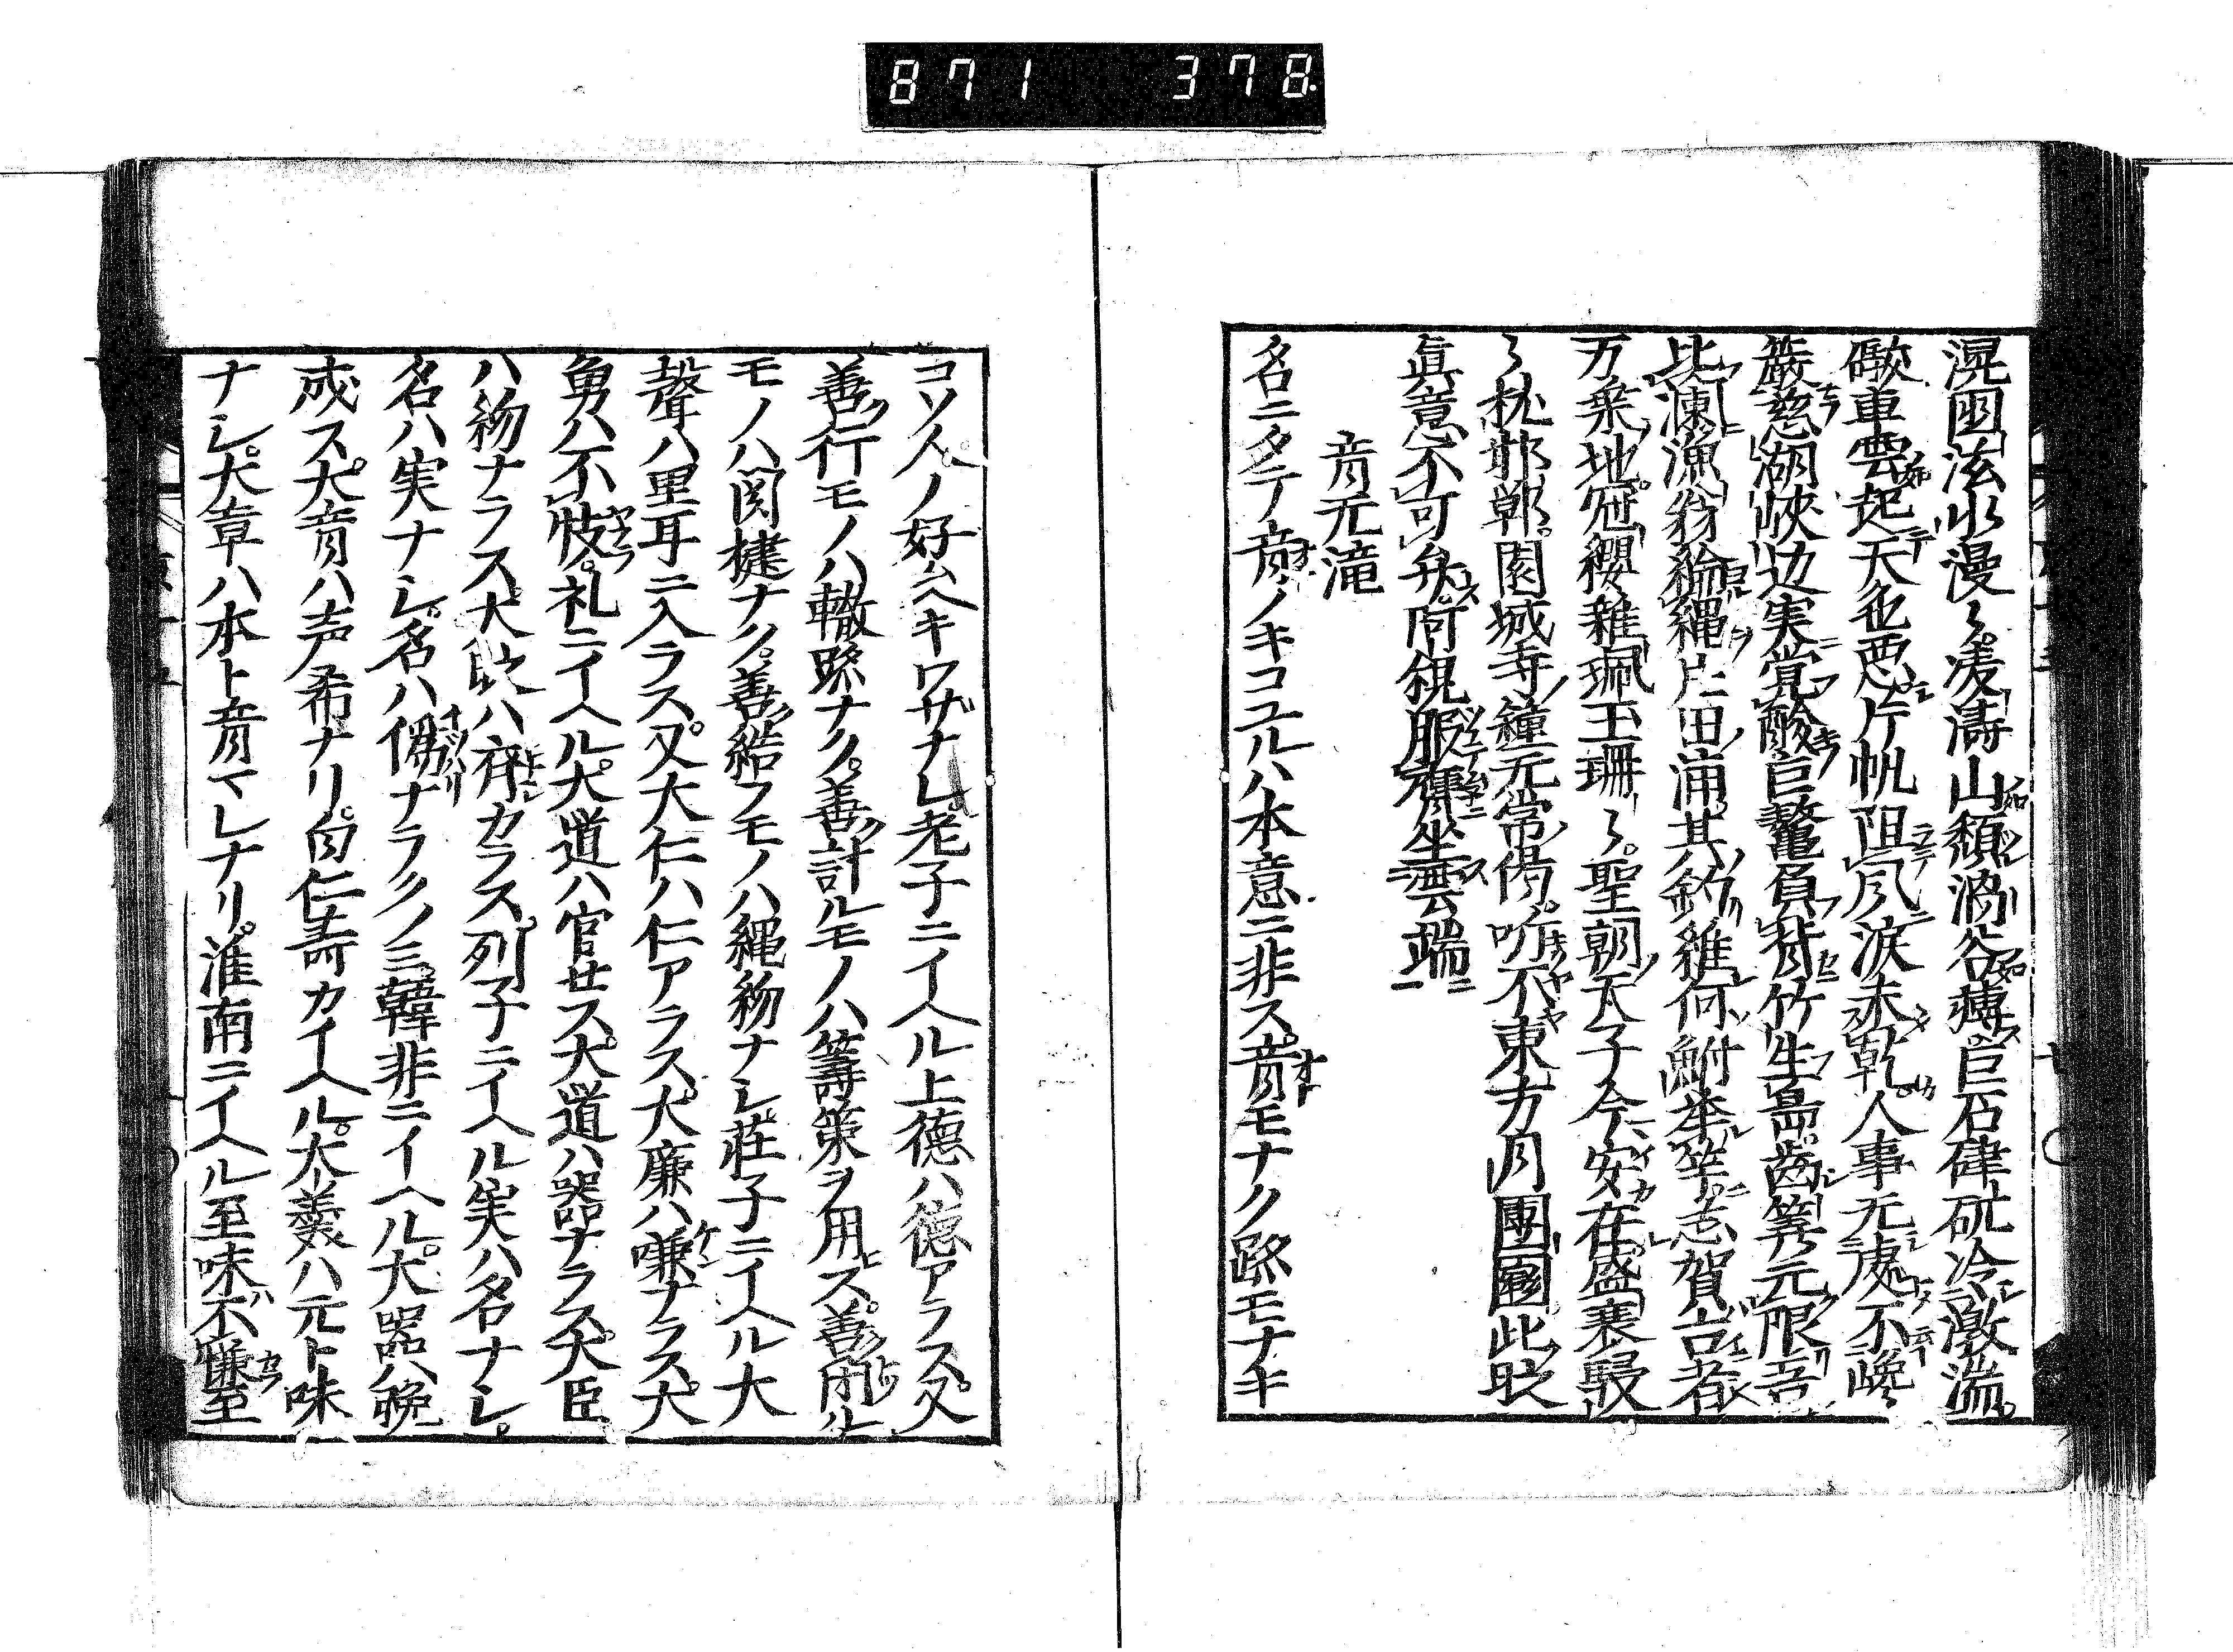 871 378
滉囦泫氺漫〻凌濤山頽激谷䏄巨石硉矹冷激湍
礮車雲起天色悪片帆阻風涙未乾人事无處不巉
巌慈湖峽辺実覚酸巨鼇負背竹生島齒筭元限吾
比湅漁翁綸縄片田浦其釣維何鮒举竿志賀台都
万乗地冠纓雜珮玉珊〻聖朝天子今安在盛衰騒
〻枕邯鄲園城寺鐘元常偈听不東方月團圝此时
眞意不可弁何親服禪坐雲端
音无滝
名ニタテ音ノキコユルハ本意ニ非ス音モナク路モナキ
コソ人ノ好ムヘキワザナレ老子ニイヘル上徳ハ徳アラス又
善行モノハ轍跡ナク善計ルモノハ籌策ヲ用ス善閇ル
モノハ関揵ナク善結フモノハ繩約ナシ荘子ニイヘル大
聲ハ里耳ニ入ラス又大仁ハ仁アラス大廉ハ嗛ナラス大
勇ハ不忮礼ニイヘル大道ハ官せス大道ハ器ナラス大臣
ハ約ナラス大時ハ齊カラス列子ニイヘル実ハ名ナシ
名ハ実ナシ名ハ僞ナラクノミ韓非ニイヘル大器ハ晩
成ス大音ハ声希ナリ白仁壽カイヘル大羹ハ元ト味
ナシ大章ハ本ト音マレナリ淮南ニイヘル至味不慊至